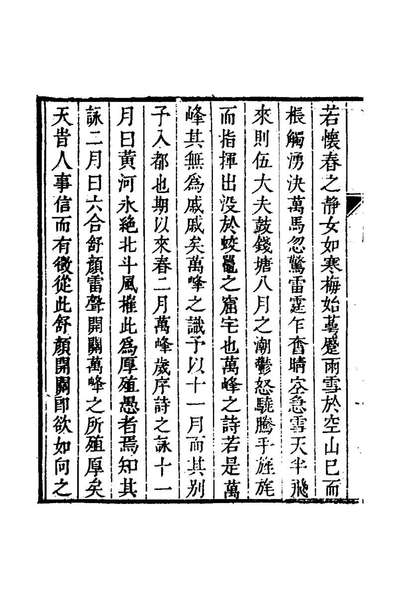 若懷春之靜女如寒梅始蕚蹙雨雪於空山已而
棖觸湧決萬馬忽驚雷霆乍奮晴空急雪天半飛
來則伍大夫鼓錢塘八月之潮鬱怒驍騰乎旌旄
而指揮出没於蛟鼉之窟宅也萬峰之詩若是萬
峰其無為戚戚矣萬峰之識予以十一月而其别
子入都也期以來春二月萬峰歲序詩之詠十一
月曰黃河氷絶北斗風摧此為厚殖愚者焉知其
詠二月曰六合舒顏雷聲開關萬峰之所殖厚矣
天眥人事信而有徵從此舒顏開關即欲如向之